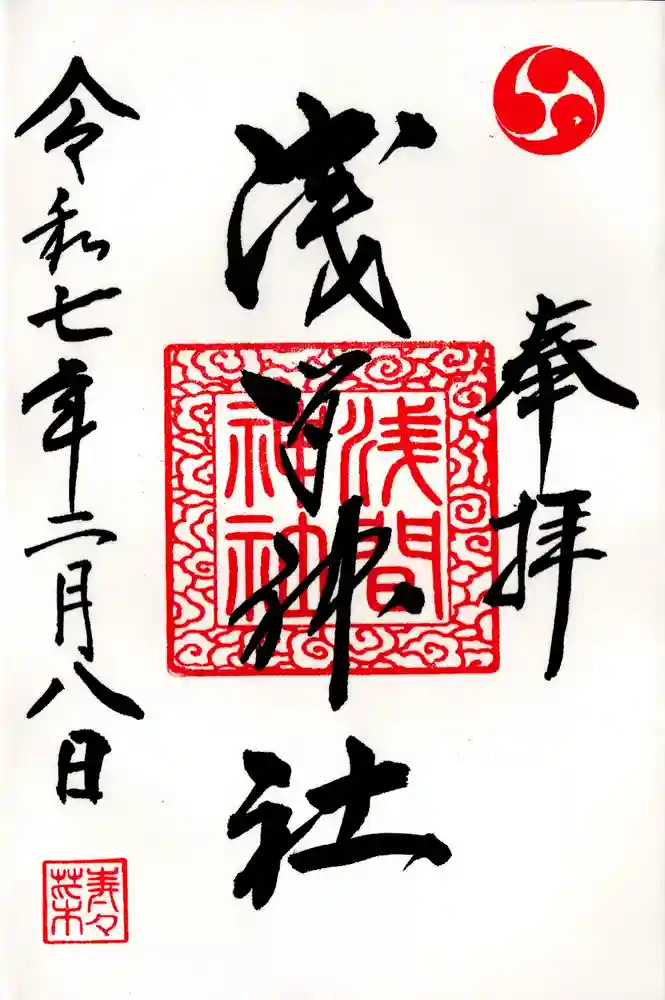 奉拝
浅间神社
浅間
神社
令和七年二月八日